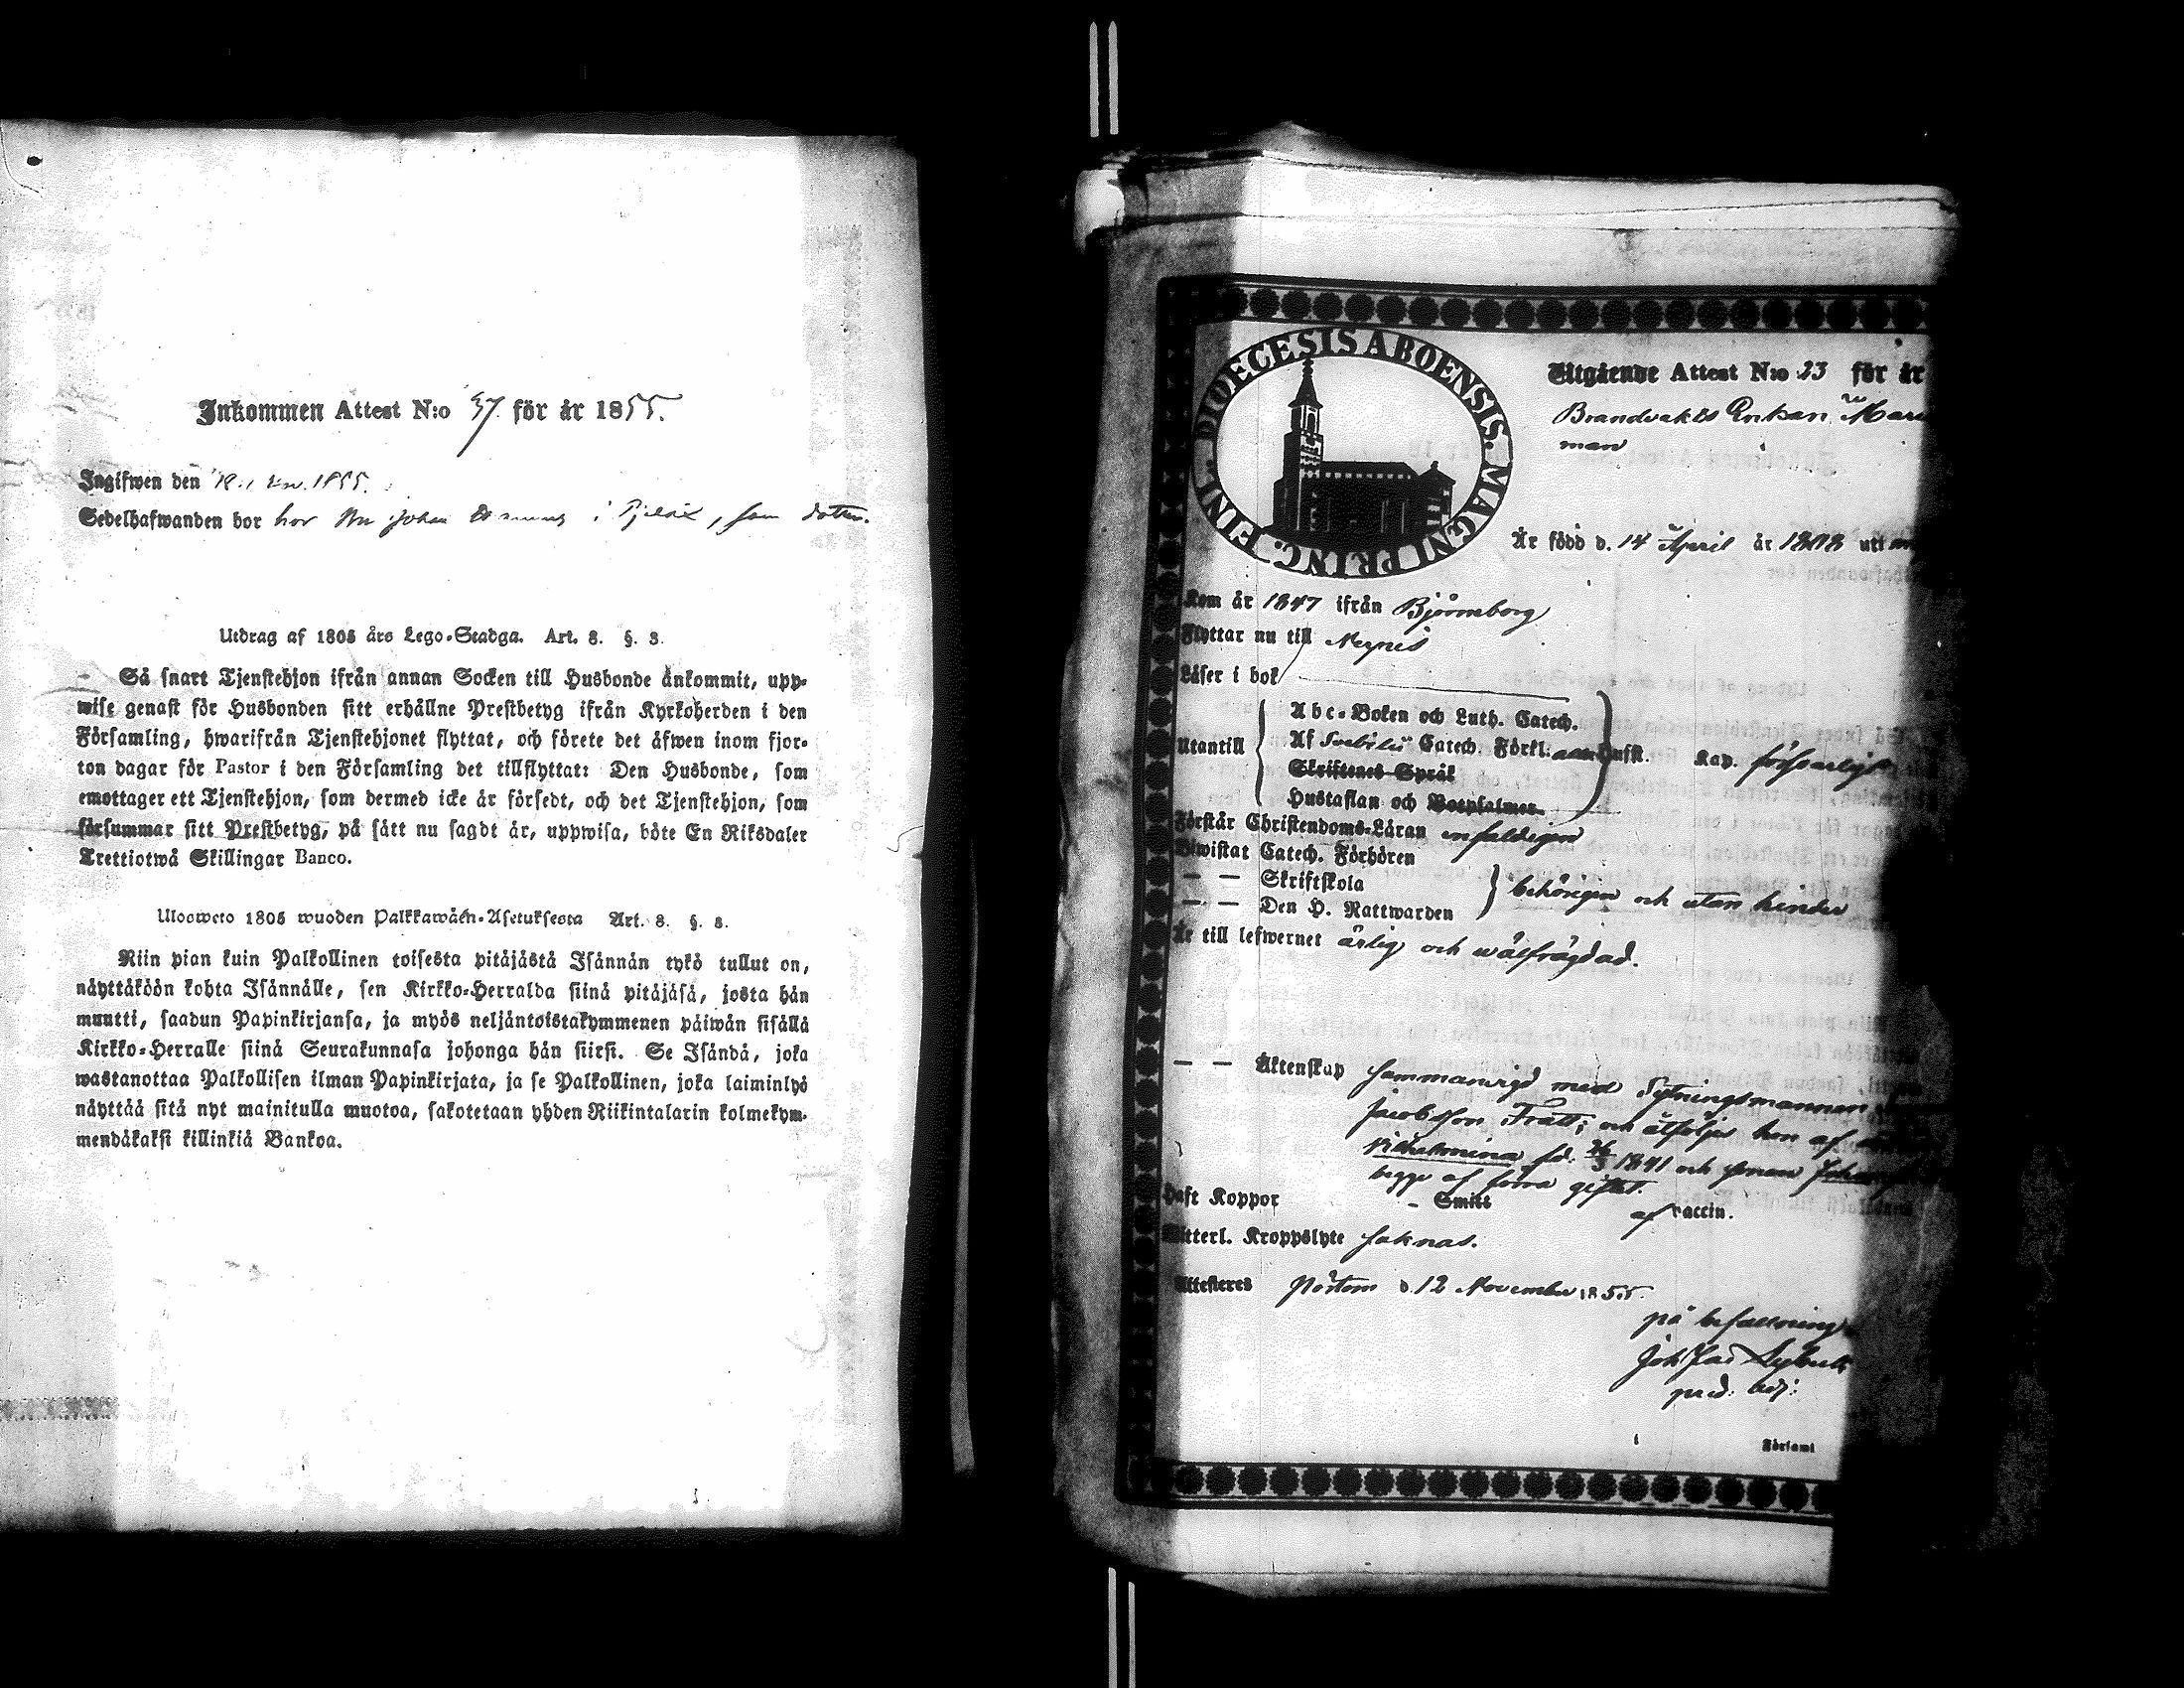 Inkommen Attest N:o 37. för år 1855.
Ingifwen den 18 1855.
Sedelhafwanden bor hos Johan i , som
Utdrag af 1805 års Lego-Stadga. Art. 8. §. 3.
Så snart Tjenstehjon ifrån annan Socken till Husbonde ånkommit, upp-
wise genast för Husbonden sitt erhållne Prestbetyg ifrån Kyrkoherden i den
Församling, hwarifrån Tjenstehjonet flyttat, och förete det åfwen inom fjor-
ton dagar för Pastor i den Församling det tillflyttat: Den Husbonde, som
emottager ett Tjenstehjon, som dermed icke år försedt, och det Tjenstehjon, som
försummar sitt Prestbetyg, på sått nu sagdt år, uppwisa, böte En Riksdaler
Trettiotwå Skillingar Banco.
Ulosweto 1805 wuoden Palkkawäen-Asetuksesta Art. 8. §. 3.
Niin pian kuin Palkollinen toisesta pitäjästä Isännän tykö tullut on,
näyttäköön kohta Isännälle, sen Kirkko-Herralda siinä pitäjäsä, josta hän
muutti, saadun Papinkirjansa, ja myös neljäntoistakymmenen päiwän sisällä
Kirkko-Herralle siinä Seurakunnasa johonga hän siirsi. Se Isändä, joka
wastanottaa Palkollisen ilman Papinkirjata, ja se Palkollinen, joka laiminlyö
näyttää sitä nyt mainitulla muotoa, sakotetaan yhden Riikintalarin kolmekym-
mendäkaksi killinkiä Bankoa.
DIOECESIS ABOENSIS. MAGNI PRINC. FINL.
Utgående Attest N:o 23 för år
Brandvakts Enkan
man
Är född d. 14 April år 1808 uti
Kom år 1847 ifrån Björneborg
Flyttar nu till Nerpes
Läser i bok
Abc-Boken och Luth. Catech.
Utantill Af Svebilii Catech. Förkl. Hufst. Kap. försvarligt
Skriftenes Språk
Hustaflan och Botpsalmer.
Förstår Christendoms-Läran enfaldigen
Biwistat Catech. Förhören
— — Skriftskola
— — Den H. Nattwarden behörigen och utan hinder
Är till lefwernet ärlig och wälfrägdad.
— — Äktenskap sammanvigd med Sytningsmannen
Jacobsson Frått; och åtföljes hon af
Vilhelmina fd. 26/3 1841 och sonen Johan
begge af förra giftet.
Haft Koppor - Smitt af Vaccin.
Witterl. Kroppslyte saknas.
Attesteres Pörtom d. 12 November 1855.
på befallning
Joh Jac
pred. adj:
Församl